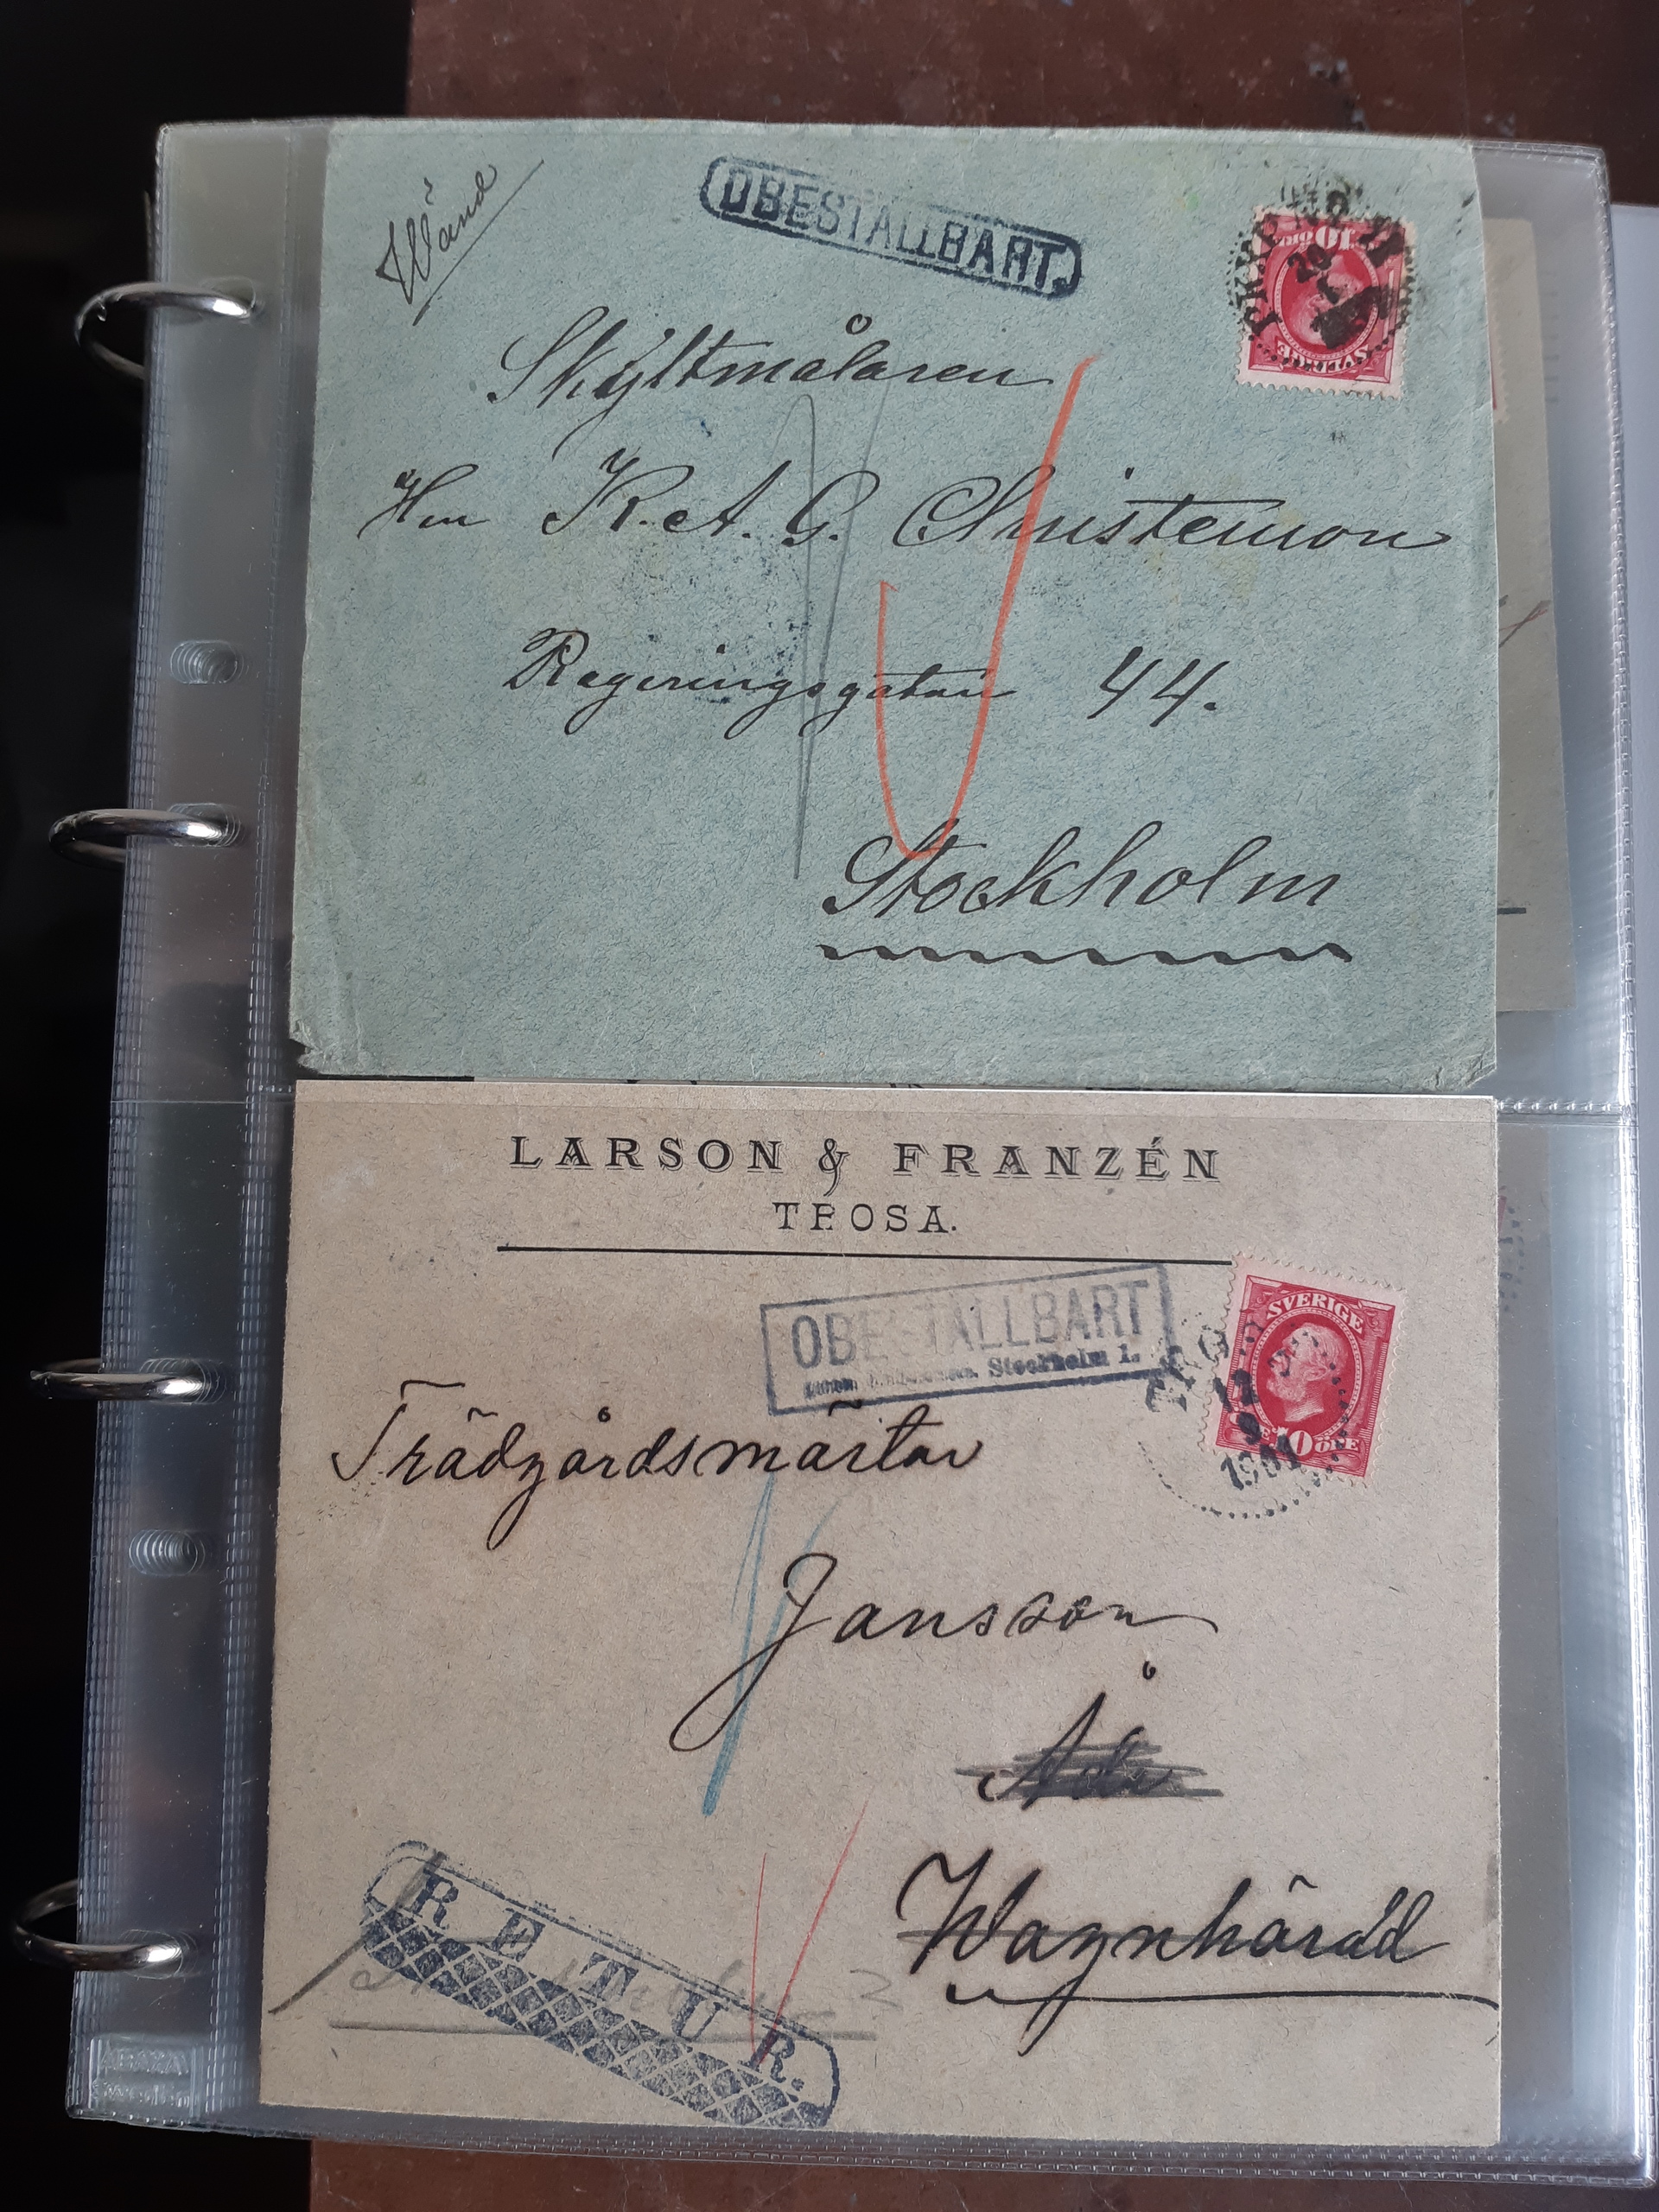 Wänd
OBESTÄLLBART.
SVERIGE
10
20
1
Skyltmålaren
Herr K. A. G. Christenson
Regeringsgatan 44.
Stockholm
LARSON & FRANZÉN
TROSA.
OBESTÄLLBART
Stockholm 1.
SVERIGE
10 ÖRE
TROSA
1901
Trädgårdsmästar
Jansson
Åda
Wagnhärad
RETUR.